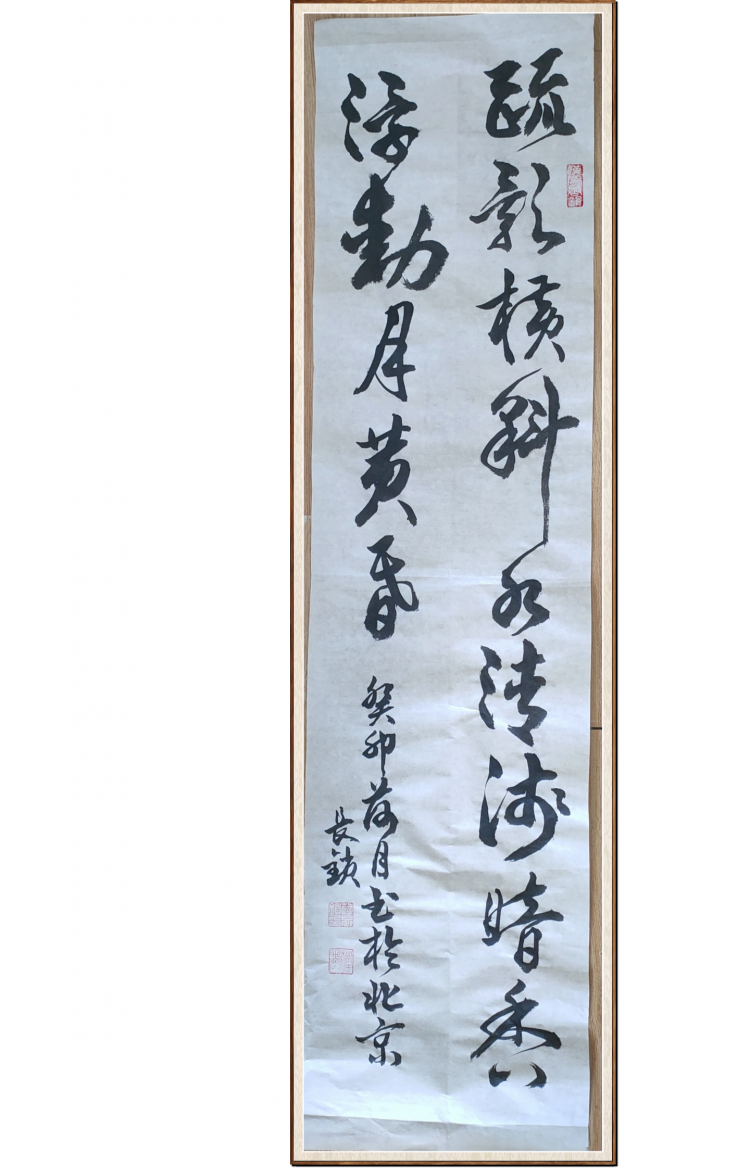 疏影横斜水清浅暗香
浮動月黄昏 癸卯荷月书於北京
長鎖